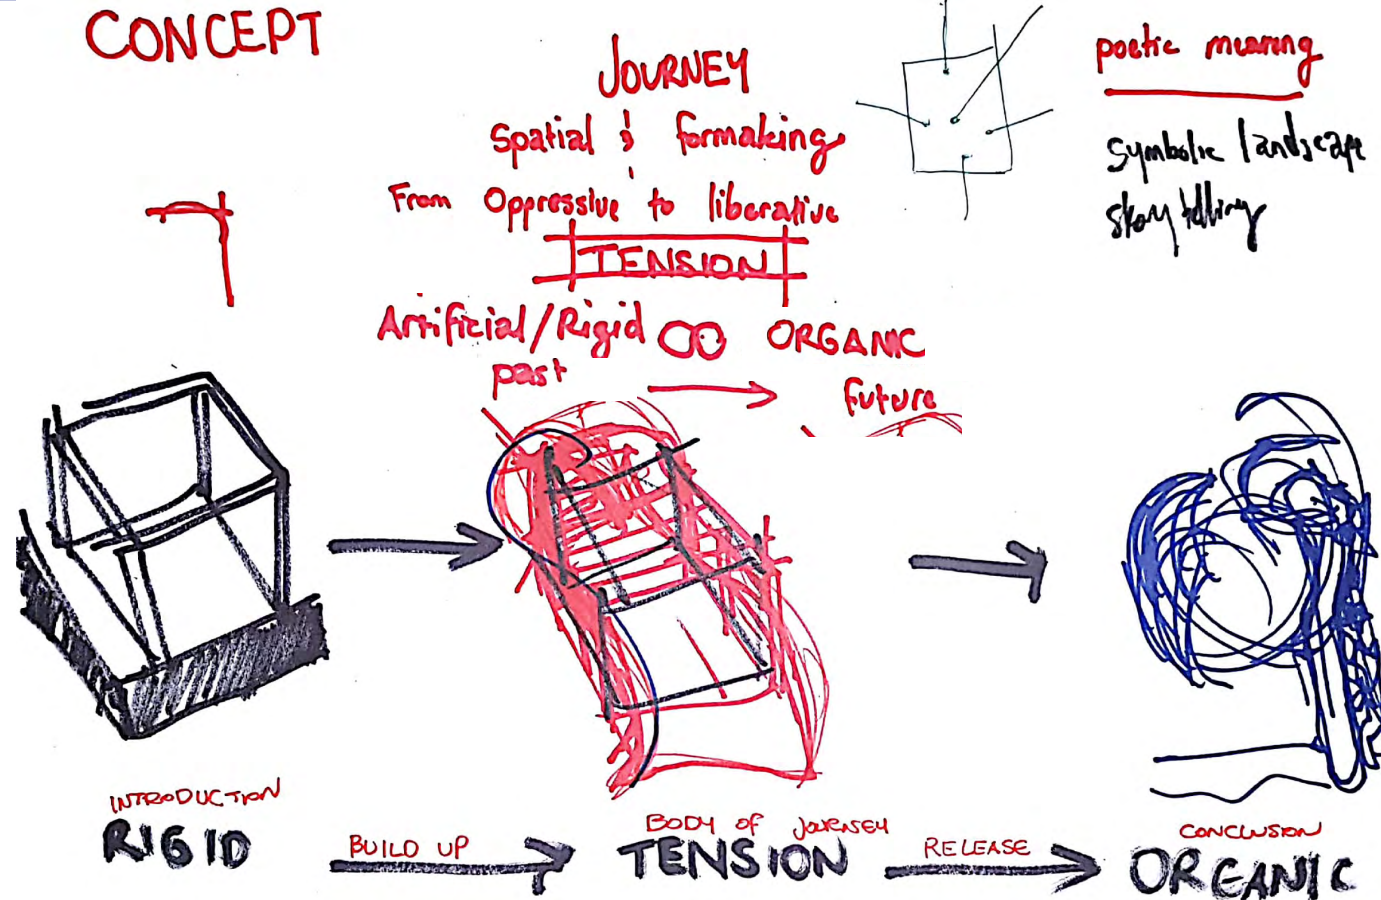 CONCEPT
JOURNEY
Spatial & formaking
From Oppressive to liberative
TENSION
Artificial/Rigid ∞ ORGANIC
past → future
poetic meaning
symbolic landscape
story telling
INTRODUCTION
RIGID
BUILD UP
BODY OF JOURNEY
TENSION
RELEASE
CONCLUSION
ORGANIC